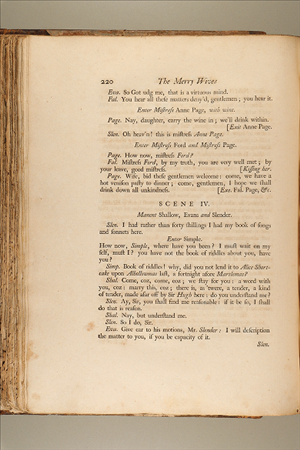 220 The Merry Wives
Eva. So Got udg me, that is a virtuous mind.
Fal. You hear all these matters deny'd, gentlemen; you hear it.
Enter Mistress Anne Page, with wine.
Page. Nay, daughter, carry the wine in; we'll drink within.
[Exit Anne Page.
Slen. Oh heav'n! this is mistress Anne Page.
Enter Mistress Ford and Mistress Page.
Page. How now, mistress Ford?
Fal. Mistress Ford, by my troth, you are very well met; by
your leave, good mistress. [Kissing her.
Page. Wife, bid these gentlemen welcome: come, we have a
hot venison pasty to dinner; come, gentlemen, I hope we shall
drink down all unkindness. [Exe. Fal. Page, &c.
SCENE IV.
Manent Shallow, Evans and Slender.
Slen. I had rather than forty shillings I had my book of songs
and sonnets here.
Enter Simple.
How now, Simple, where have you been? I must wait on my
self, must I? you have not the book of riddles about you, have
you?
Simp. Book of riddles! why, did you not lend it to Alice Short-
cake upon Alhallowmas last, a fortnight afore Martlemas?
Shal. Come, coz, come, coz; we stay for you: a word with
you, coz: marry this, coz; there is, as 'twere, a tender, a kind
of tender, made afar off by Sir Hugh here: do you understand me?
Slen. Ay, Sir, you shall find me reasonable: if it be so, I shall
do that is reason.
Shal. Nay, but understand me.
Slen. So I do, Sir.
Eva. Give ear to his motions, Mr. Slender: I will description
the matter to you, if you be capacity of it.
Slen.